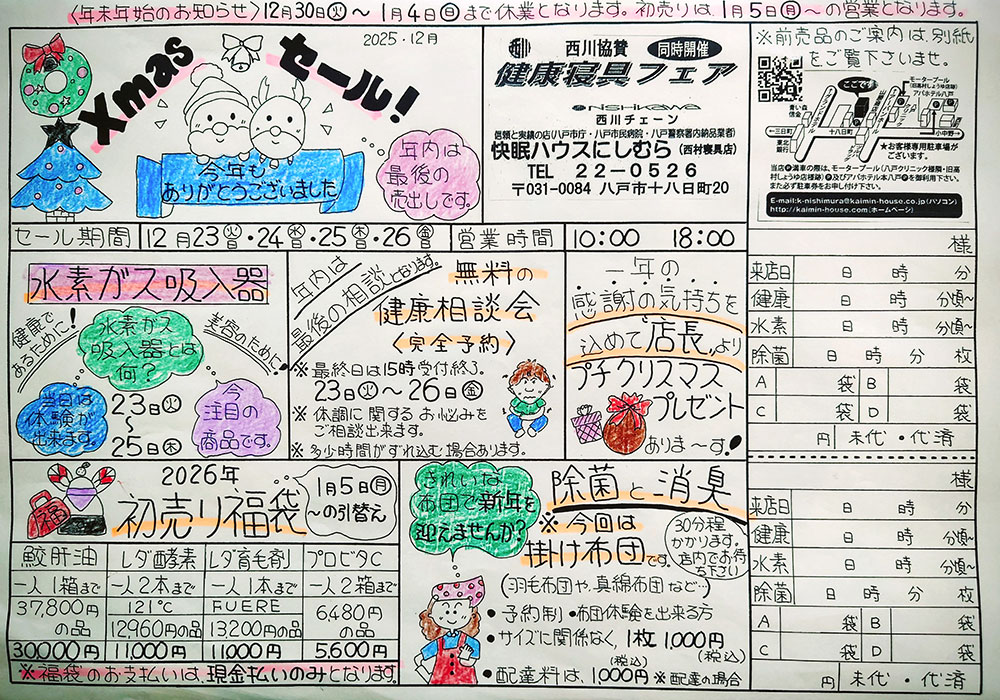 〈年末年始のお知らせ〉12月30日㊋～1月4日㊐まで休業となります。初売りは、1月5日㊊～の営業となります。
2025・12月
Xmas セール！
今年も
ありがとうございました
年内は
最後の
売出しです。
西川協賛 同時開催
健康寝具フェア
nishikawa
西川チェーン
信頼と実績の店(八戸市庁・八戸市民病院・八戸警察署内納品業者)
快眠ハウスにしむら(西村寝具店)
TEL 22-0526
〒031-0084 八戸市十八日町20
※前売品のご案内は、別紙
をご覧下さいませ。
ここです
モータープール
(旧高村しょうゆ店様隣)
アパホテル八戸
青い森
信金
←三日町
十八日町
小中野→
東北
銀行
★お客様専用駐車場が
ございます。
当店Ⓟ満車の際は、モータープール(八戸クリニック様隣・旧高
村しょうゆ店様隣)Ⓟ及びアパホテル本八戸Ⓟを御利用下さい。
また必ず駐車券をお申し付け下さい。
E-mail:k-nishimura@kaimin-house.co.jp(パソコン)
http://kaimin-house.com(ホームページ)
セール期間 12月23㊋・24㊌・25㊍・26㊎ 営業時間 10:00 18:00
水素ガス吸入器
健康で
あるために！
水素ガス
吸入器とは
何？
美容のために！
当日は
体験が
出来ます。
23日㊋
～
25日㊍
今
注目の
商品です。
年内は
最後の相談となります。
無料の
健康相談会
〈完全予約〉
※最終日は15時受付終了。
23日㊋～26日㊎
※体調に関するお悩みを
ご相談出来ます。
※多少時間がずれ込む場合あります。
一年の
感謝の気持ちを
込めて店長より
プチクリスマス
プレゼント
ありま～す！
様
来店日 日 時 分
健康 日 時 分頃～
水素 日 時 分頃～
除菌 日 時 分 枚
A 袋 B 袋
C 袋 D 袋
円 未代・代済
様
来店日 日 時 分
健康 日 時 分頃～
水素 日 時 分頃～
除菌 日 時 分 枚
A 袋 B 袋
C 袋 D 袋
円 未代・代済
福
2026年
初売り福袋
1月5日㊊
～の引替え
鮫肝油 レダ酵素 レダ育毛剤 プロビタC
一人1箱まで 一人2本まで 一人1本まで 一人2箱まで
37,800円
の品
121℃
12,960円の品
FUERE
13,200円の品
6,480円
の品
30,000円 11,000円 11,000円 5,600円
※福袋のお支払いは、現金払いのみとなります。
きれいな
布団で新年を
迎えませんか？
除菌と消臭
※今回は
掛け布団です。
30分程
かかります。
店内でお待
ち下さい
(羽毛布団や、真綿布団など…)
・予約制・布団体験を出来る方
・サイズに関係なく、1枚1,000円
(税込)
・配達料は、1,000円(税込) ※配達の場合